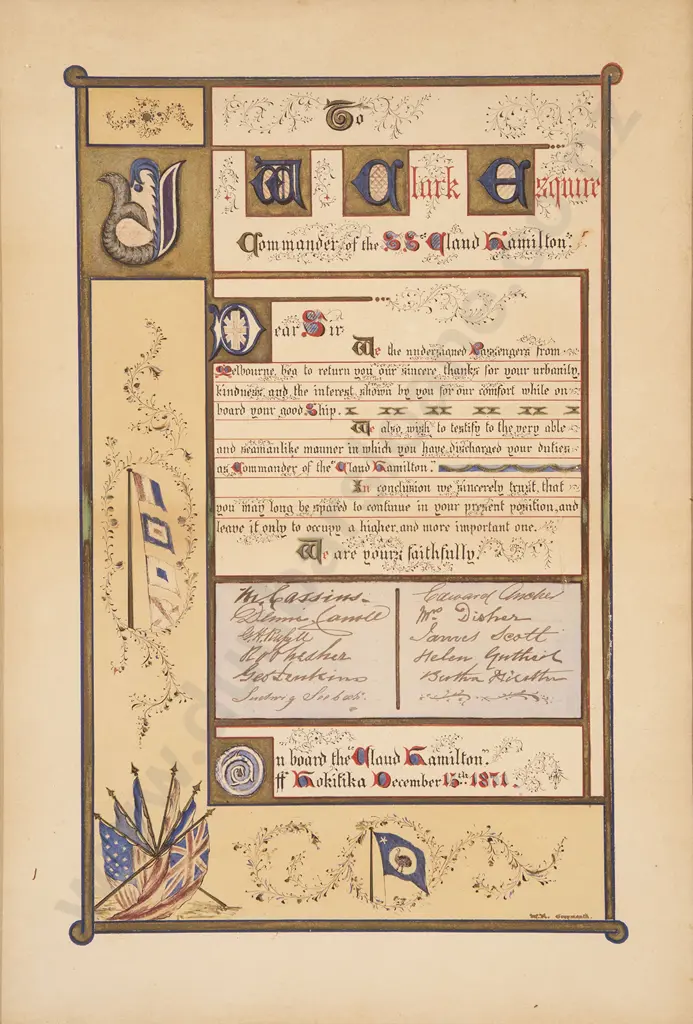 To
J W Clark Esquire
Commander of the SS "Claud Hamilton".
Dear Sir
We the undersigned Passengers from
Melbourne, beg to return you our sincere thanks for your urbanity,
kindness, and the interest shown by you for our comfort while on
board your good Ship.
We also wish to testify to the very able
and seamanlike manner in which you have discharged your duties
as Commander of the "Claud Hamilton."
In conclusion we sincerely trust, that
you may long be spared to continue in your present position, and
leave it only to occupy a higher, and more important one.
We are yours faithfully.
M. Cassins
Edward
Carroll
Disher
G. H.
James Scott
Helen
Geo Jenkins
Ludwig
On board the "Claud Hamilton".
off Hokitika December 15th 1871.